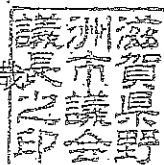 滋賀県野
洲市議会
議長之印